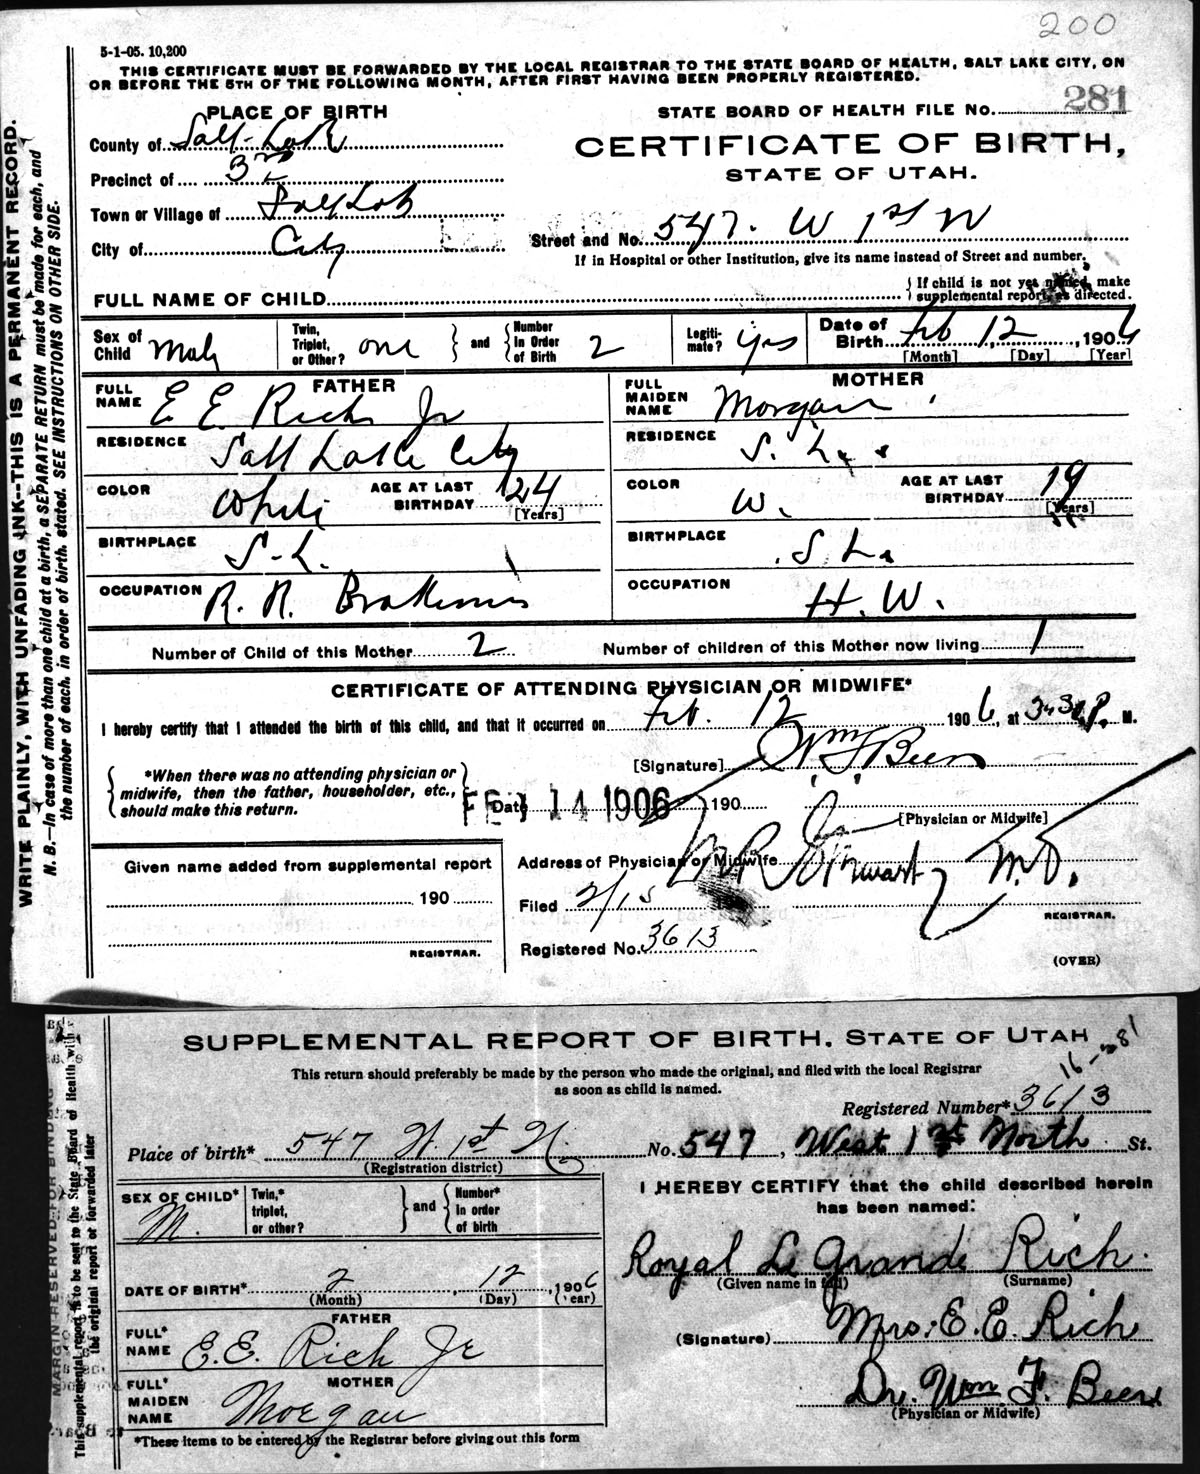 200
5-1-05. 10,200
THIS CERTIFICATE MUST BE FORWARDED BY THE LOCAL REGISTRAR TO THE STATE BOARD OF HEALTH, SALT LAKE CITY, ON
OR BEFORE THE 5TH OF THE FOLLOWING MONTH, AFTER FIRST HAVING BEEN PROPERLY REGISTERED.
WRITE PLAINLY, WITH UNFADING INK--THIS IS A PERMANENT RECORD.
N. B.—In case of more than one child at a birth, a SEPARATE RETURN must be made for each, and
the number of each, in order of birth, stated. SEE INSTRUCTIONS ON OTHER SIDE.
PLACE OF BIRTH
County of Salt-Lake
Precinct of 3rd
Town or Village of Salt Lake
City of City
STATE BOARD OF HEALTH FILE NO. 281
CERTIFICATE OF BIRTH,
STATE OF UTAH.
Street and No. 547. W 1st N
If in Hospital or other Institution, give its name instead of Street and number.
FULL NAME OF CHILD
If child is not yet named, make
supplemental report, as directed.
Sex of Child Male
Twin, Triplet, or Other? one
and
Number in Order of Birth 2
Legiti-mate? yes
Date of Birth Feb 12, 1906
[Month] [Day] [Year]
FATHER
FULL NAME E E Rich Jr
RESIDENCE Salt Lake City
COLOR White
AGE AT LAST BIRTHDAY 24
[Years]
BIRTHPLACE S-L.
OCCUPATION R. R. Brakeman
MOTHER
FULL MAIDEN NAME Morgan
RESIDENCE S. L.
COLOR W.
AGE AT LAST BIRTHDAY 19
[Years]
BIRTHPLACE S L.
OCCUPATION H. W.
Number of Child of this Mother 2
Number of children of this Mother now living 1
CERTIFICATE OF ATTENDING PHYSICIAN OR MIDWIFE*
I hereby certify that I attended the birth of this child, and that it occurred on Feb. 12 1906, at 3:30 P. M.
*When there was no attending physician or
midwife, then the father, householder, etc.,
should make this return.
[Signature] Wm F Beer
Date FEB 14 1906 190
[Physician or Midwife]
Address of Physician or Midwife
M R Stewart M.D.
Filed 2/15
REGISTRAR.
Registered No. 3613
(OVER)
Given name added from supplemental report
190
REGISTRAR.
SUPPLEMENTAL REPORT OF BIRTH, STATE OF UTAH
This return should preferably be made by the person who made the original, and filed with the local Registrar
as soon as child is named.
16-281
Registered Number* 3613
Place of birth* 547 W. 1st N.
(Registration district)
No. 547, West 1st North St.
MARGIN RESERVED FOR BINDING
This supplemental report is to be sent to the State Board of Health with
the original report or forwarded later
SEX OF CHILD* M.
Twin,* triplet, or other?
and
Number* in order of birth
DATE OF BIRTH* 2, 12, 1906
(Month) (Day) (Year)
FATHER
FULL* NAME E.E. Rich Jr
MOTHER
FULL* MAIDEN NAME Morgan
*These items to be entered by the Registrar before giving out this form
I HEREBY CERTIFY that the child described herein
has been named:
Royal Le Grande Rich.
(Given name in full) (Surname)
(Signature) Mrs. E. E. Rich
Dr. Wm F. Beer
(Physician or Midwife)